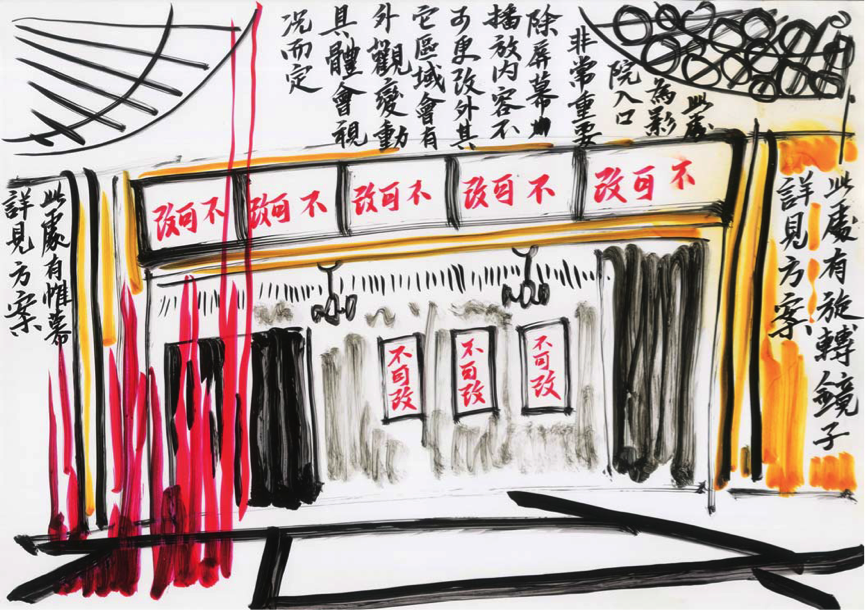 此處
為影
院入口
非常重要
除屏幕
播放内容不
可更改外其
它區域會有
外觀變動
具體會視
况而定
此處有旋轉鏡子
詳見方案
不可改
不可改
不可改
不可改
不可改
不可改
不可改
不可改
此處有帷幕
詳見方案